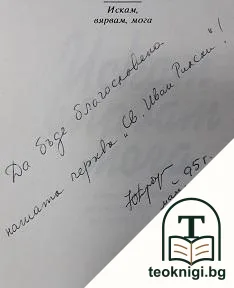 Искам,
вярвам, мога
Да бъде благословена
нашата черква „Св. Иван Рилски"!
май - 95 г.
T
teoknigi.bg